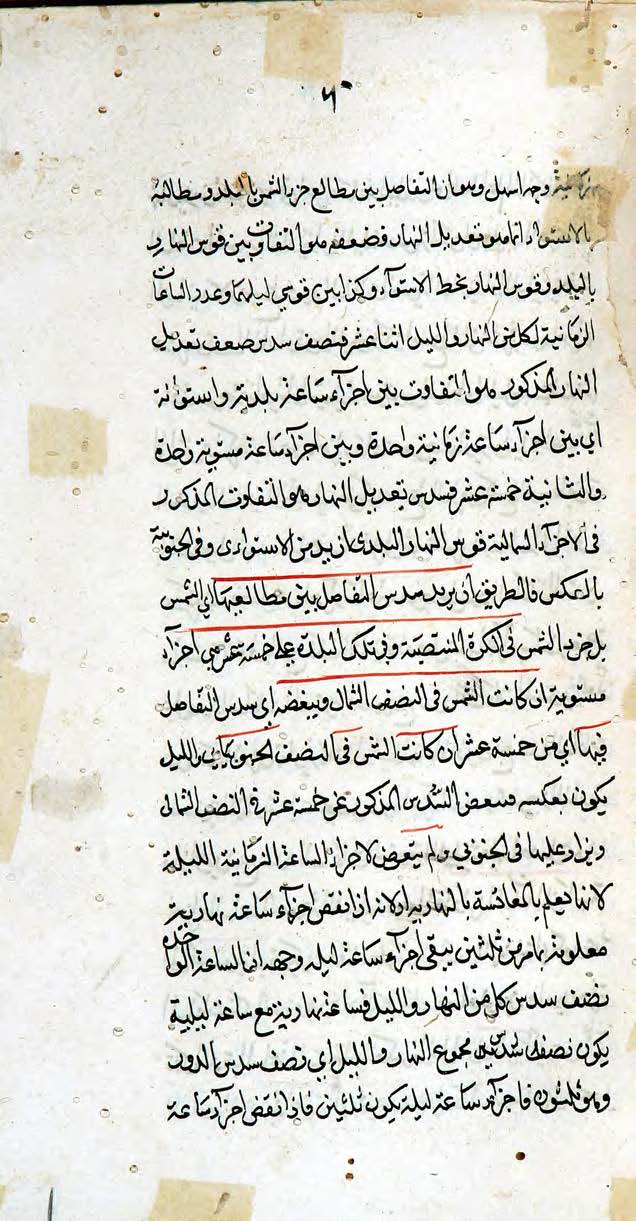 ٦٠
زمانية وجه اسهل وهو ان التفاضل بين مطالع جزء الشمس بالبلد ومطالعه
بالاستواء انما هو تعديل النهار وضعفه هو التفاوت بين قوس النهار
بالبلد وقوس النهار بخط الاستواء وكذا بين قوسي ليلهما وعدد الساعات
الزمانية لكل من النهار والليل اثنا عشر فنصف سدس ضعف تعديل
النهار المذكور هو التفاوت بين اجزاء ساعة بلدية واستوائية
اي بين اجزاء ساعة زمانية واحدة وبين اجزاء ساعة مستوية واحدة
والثانية خمسة عشر فسدس تعديل النهار هو التفاوت المذكور
ففي الاجزاء الشمالية قوس النهار البلدى ازيد من الاستواءى وفى الجنوبية
بالعكس فالطريق ان يزيد سدس التفاضل بين مطالعها اي الشمس
بل جزء الشمس فى الكرة المنتصبة وفى تلك البلدة على خمسة عشر هي اجزاء
مستوية ان كانت الشمس فى النصف الشمال وينقصه اى سدس التفاضل
منها اي من خمسة عشر ان كانت الشمس فى النصف الجنوبي والليل
يكون بعكسه فينقص السدس المذكور عن خمسة عشر فى النصف الشمالى
ويزاد عليها فى الجنوبي ولم يتعرض لاجزاء الساعة الزمانية الليلة
لانها يعلم بالمقائسة بالنهارية او لانه اذا نقص اجزاء ساعة نهارية
معلومة بما مر من ثلثين يبقى اجزاء ساعة ليله وجهه ان الساعة الواحدة
نصف سدس كل من النهار والليل فساعة نهارية مع ساعة ليلية
يكون نصف سدس مجموع النهار والليل اي نصف سدس الدور
وهو ثلثون فاجزاء ساعة ليلة يكون ثلثين فاذا نقص اجزاء ساعة